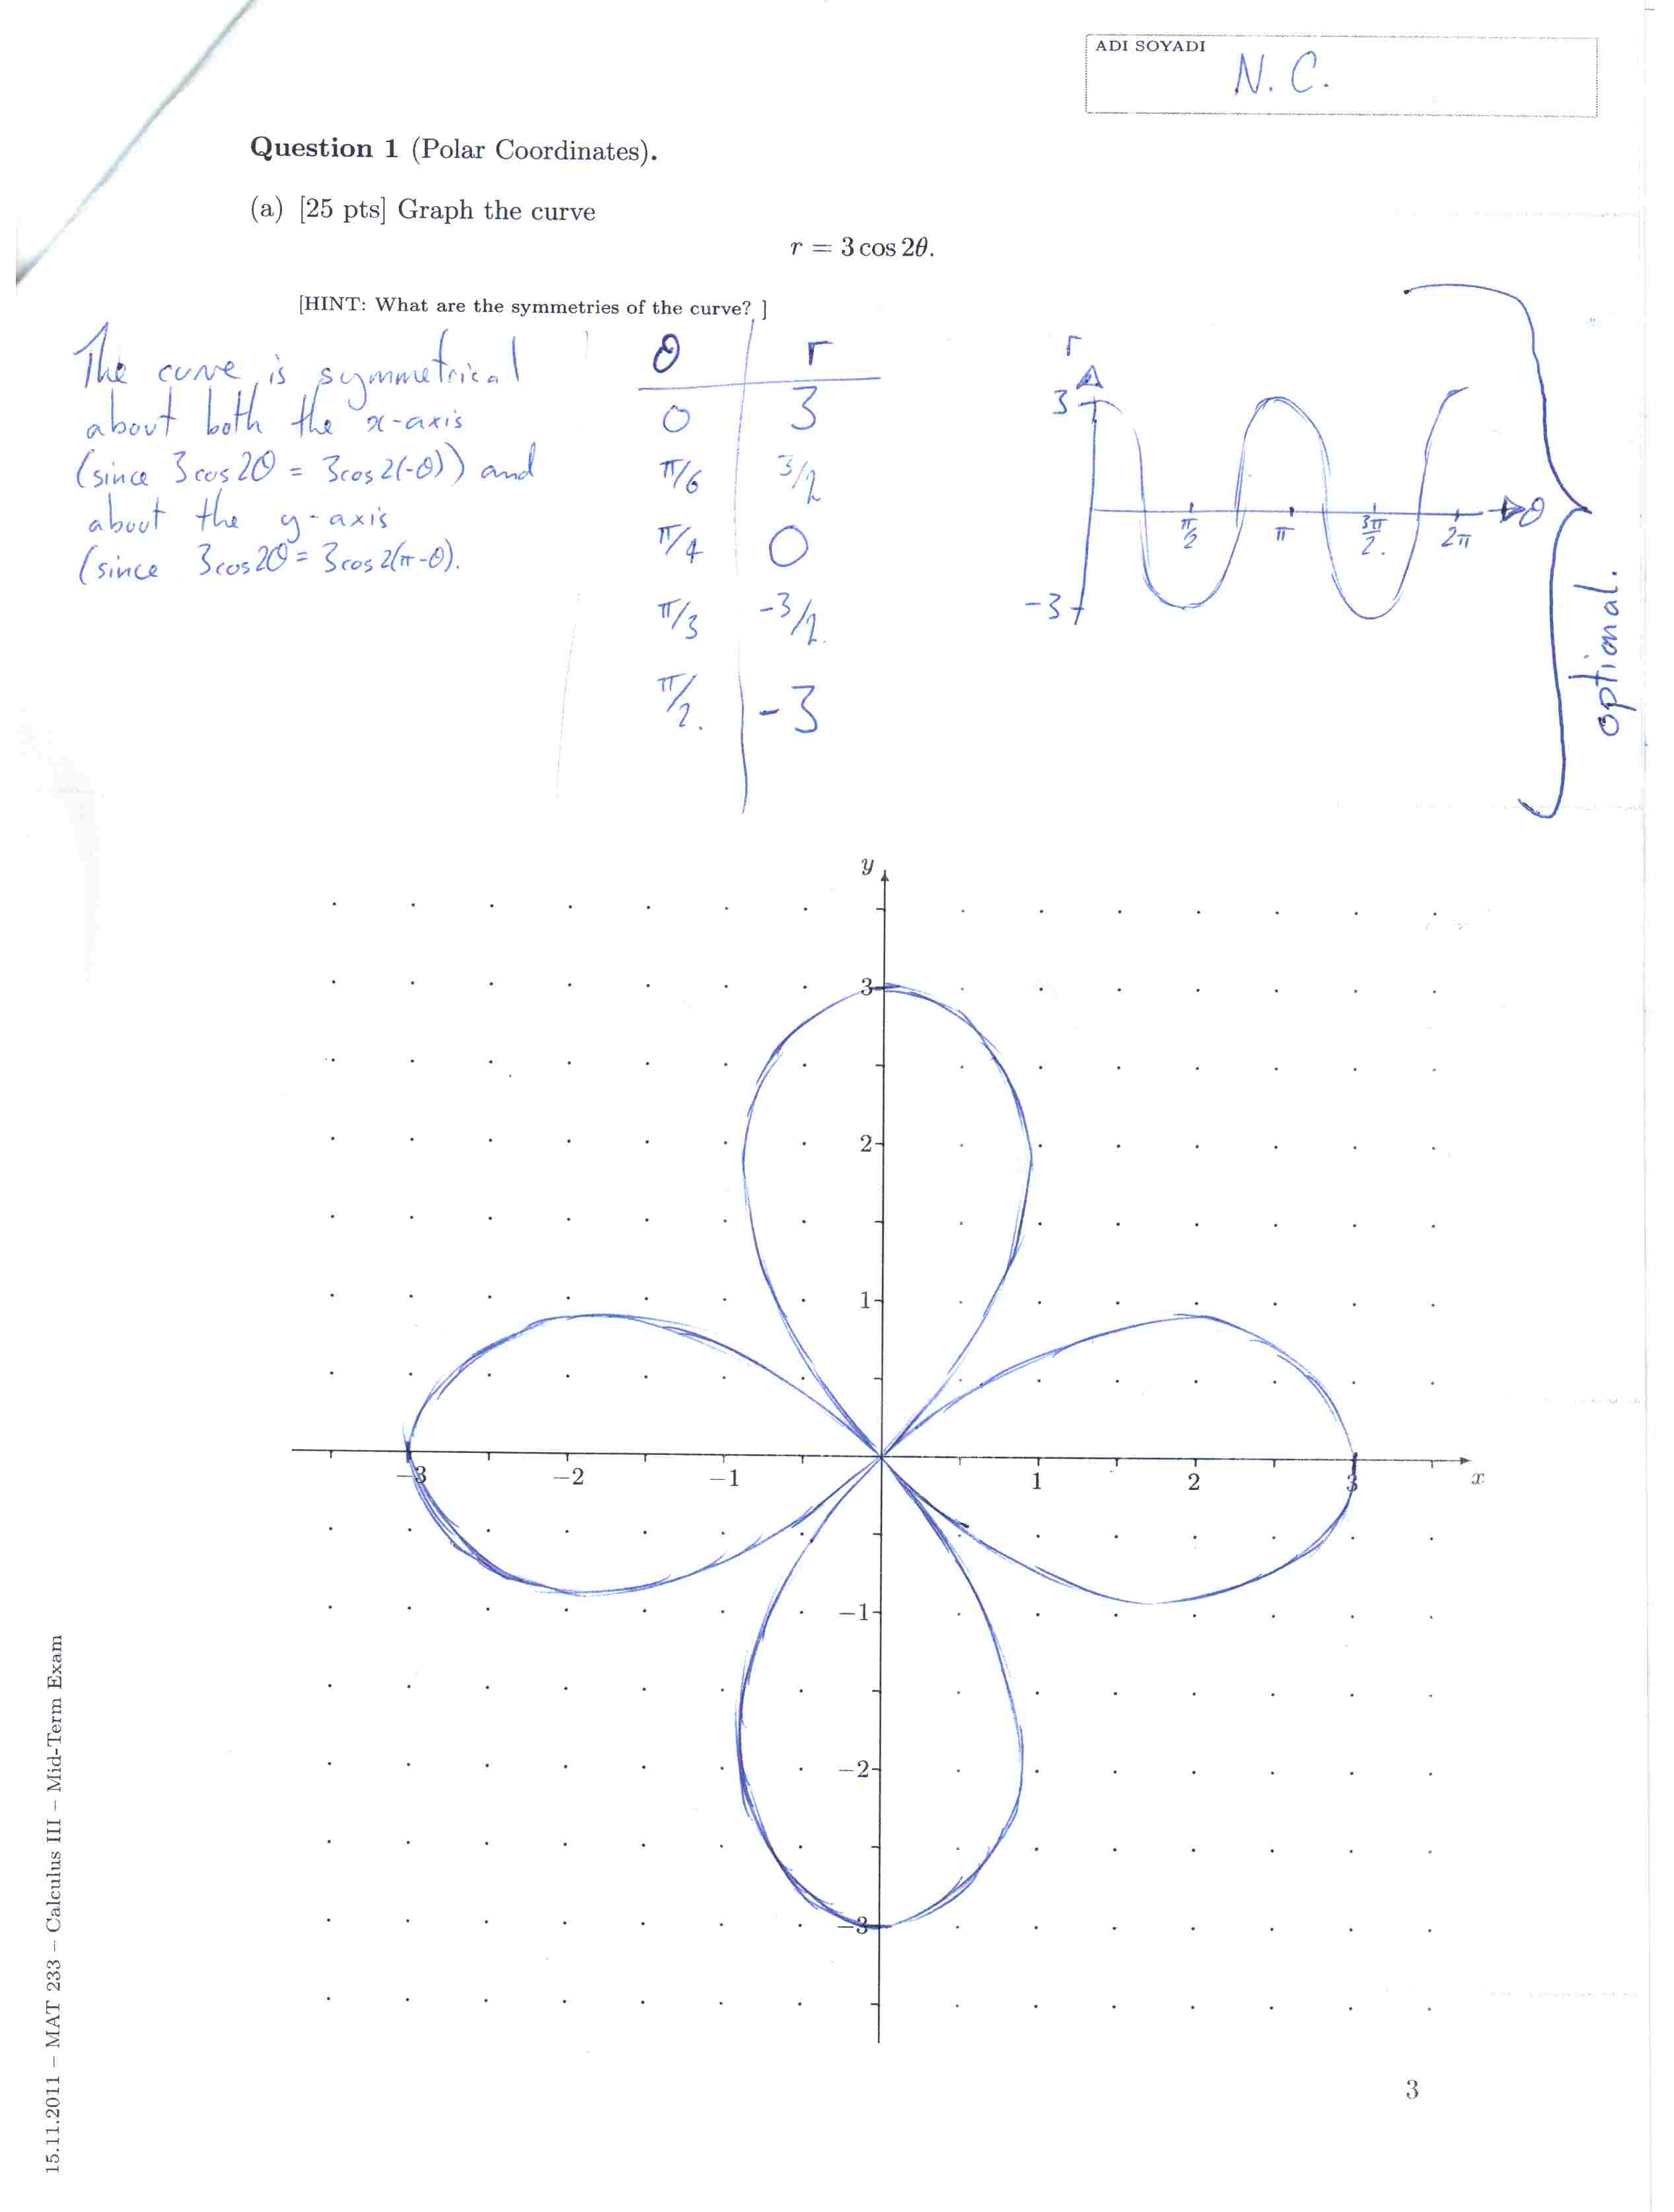 ADI SOYADI
N. C.
Question 1 (Polar Coordinates).
(a) [25 pts] Graph the curve
r = 3 cos 2θ.
[HINT: What are the symmetries of the curve? ]
The curve is symmetrical
about both the x-axis
(since 3cos2θ = 3cos2(-θ)) and
about the y-axis
(since 3cos2θ = 3cos2(π-θ).
θ r
0 3
π/6 3/2
π/4 0
π/3 -3/2.
π/2. -3
r
3
-3
π/2 π 3π/2. 2π θ
optional.
y
3
2
1
−3 −2 −1 1 2 3 x
−1
−2
−3
3
15.11.2011 – MAT 233 – Calculus III – Mid-Term Exam